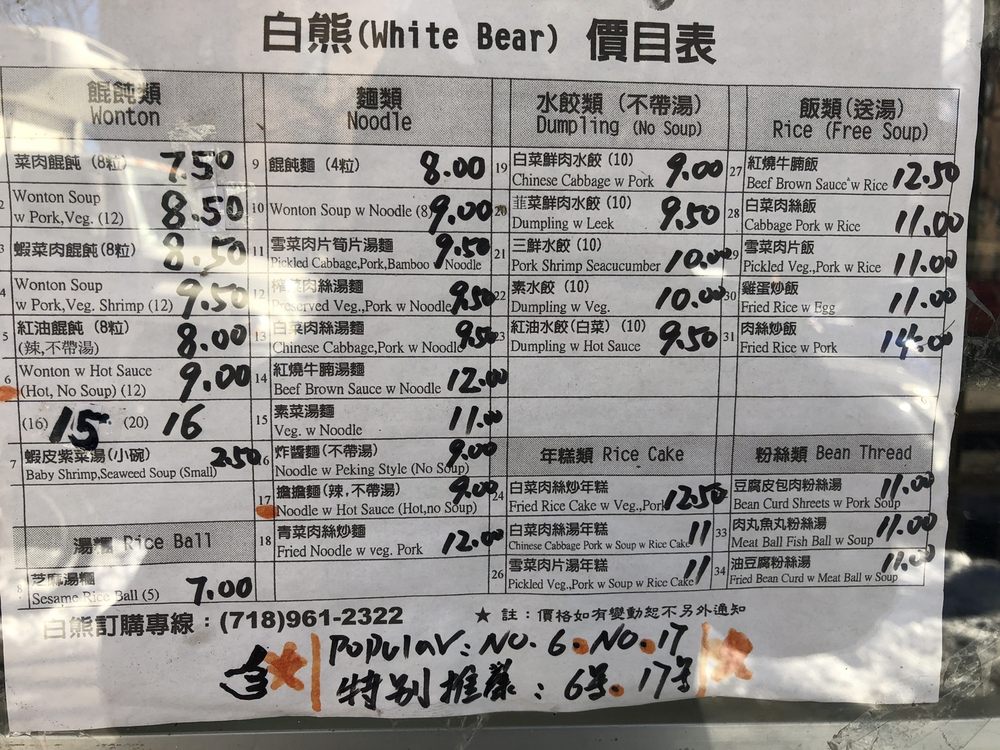 白熊(White Bear) 價目表
餛飩類
Wonton
菜肉餛飩 (8粒) 7.50
2 Wonton Soup
w Pork,Veg. (12) 8.50
3 蝦菜肉餛飩(8粒) 8.50
4 Wonton Soup
w Pork,Veg. Shrimp (12) 9.50
5 紅油餛飩 (8粒)
(辣,不帶湯) 8.00
6 Wonton w Hot Sauce
(Hot, No Soup) (12) 9.00
(16) 15 (20) 16
7 蝦皮紫菜湯(小碗)
Baby Shrimp,Seaweed Soup (Small) 2.50
湯糰 Rice Ball
8 芝麻湯糰
Sesame Rice Ball (5) 7.00
麵類
Noodle
9 餛飩麵 (4粒) 8.00
10 Wonton Soup w Noodle (8) 9.00
11 雪菜肉片筍片湯麵
Pickled Cabbage,Pork,Bamboo w Noodle 9.50
12 榨菜肉絲湯麵
Preserved Veg.,Pork w Noodle 9.50
13 白菜肉絲湯麵
Chinese Cabbage,Pork w Noodle 9.50
14 紅燒牛腩湯麵
Beef Brown Sauce w Noodle 12.00
15 素菜湯麵
Veg. w Noodle 11.00
16 炸醬麵(不帶湯)
Noodle w Peking Style (No Soup) 9.00
17 擔擔麵(辣,不帶湯)
Noodle w Hot Sauce (Hot,no Soup) 9.00
18 青菜肉絲炒麵
Fried Noodle w veg. Pork 12.00
水餃類 (不帶湯)
Dumpling (No Soup)
19 白菜鮮肉水餃 (10)
Chinese Cabbage w Pork 9.00
20 韮菜鮮肉水餃 (10)
Dumpling w Leek 9.50
21 三鮮水餃 (10)
Pork Shrimp Seacucumber 10.00
22 素水餃 (10)
Dumpling w Veg. 10.00
23 紅油水餃(白菜) (10)
Dumpling w Hot Sauce 9.50
年糕類 Rice Cake
24 白菜肉絲炒年糕
Fried Rice Cake w Veg.,Pork 12.50
白菜肉絲湯年糕
Chinese Cabbage Pork w Soup w Rice Cake 11
26 雪菜肉片湯年糕
Pickled Veg.,Pork w Soup w Rice Cake 11
飯類(送湯)
Rice (Free Soup)
27 紅燒牛腩飯
Beef Brown Sauce w Rice 12.50
28 白菜肉絲飯
Cabbage Pork w Rice 11.00
29 雪菜肉片飯
Pickled Veg.,Pork w Rice 11.00
30 雞蛋炒飯
Fried Rice w Egg 11.00
31 肉絲炒飯
Fried Rice w Pork 14.00
粉絲類 Bean Thread
豆腐皮包肉粉絲湯
Bean Curd Shreets w Pork Soup 11.00
33 肉丸魚丸粉絲湯
Meat Ball Fish Ball w Soup 11.00
34 油豆腐粉絲湯
Fried Bean Curd w Meat Ball w Soup 11.00
白熊訂購專線：(718)961-2322
★ 註：價格如有變動恕不另外通知
Popular: NO. 6. NO. 17
特别推薦：6号. 17号